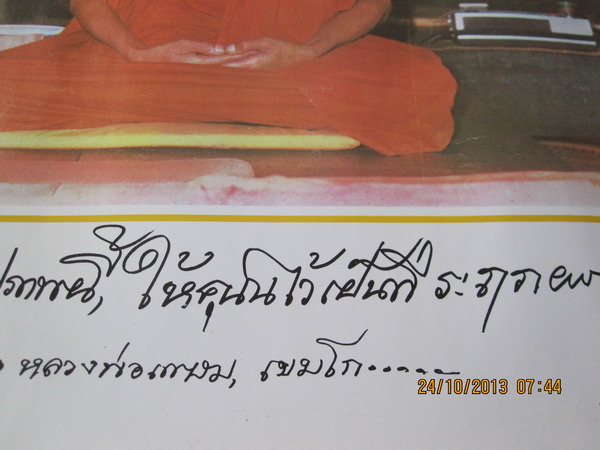 ภาพนี้, ให้คุณไว้เป็นที่ ระฦก
หลวงพ่อเกษม, เขมโก......
24/10/2013 07:44